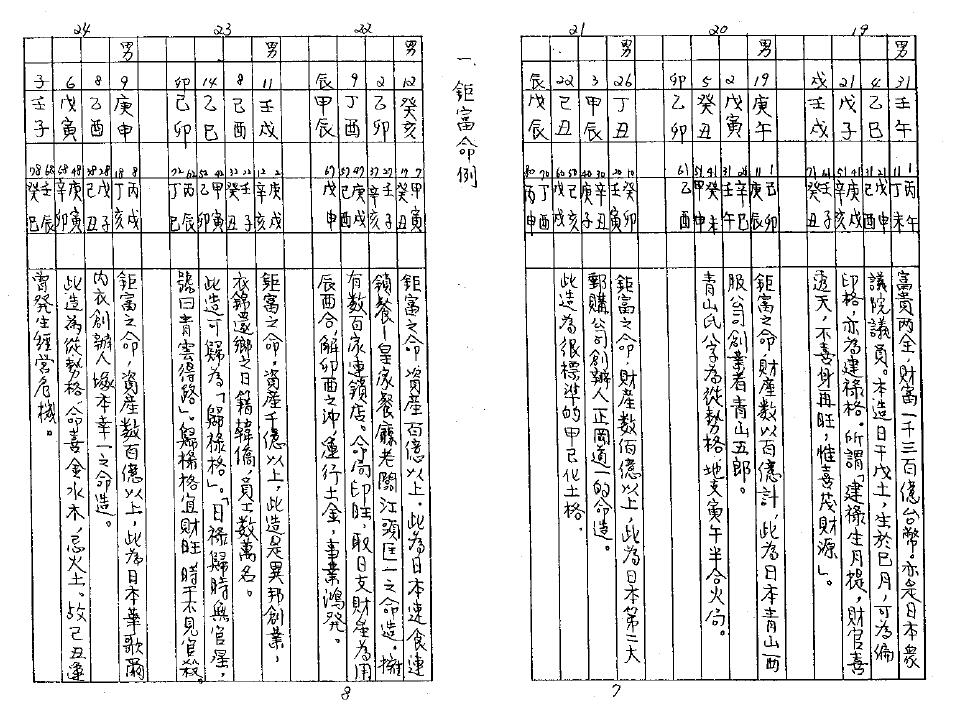 19
男
31 壬午
4 乙巳
21 戊子
戌 壬戌
1 丙午
11 丁未
21 戊申
31 己酉
41 庚戌
51 辛亥
61 壬子
71 癸丑
富貴兩全，財富一千三百億台幣。亦是日本眾
議院議員。本造日干戊土，生於巳月，可為偏
印格，亦為建祿格。所謂「建祿生月提，財官喜
透天，不喜身再旺，惟喜茂財源」。
20
男
19 庚午
2 戊寅
5 癸丑
卯 乙卯
1 己卯
11 庚辰
辛巳
31 壬午
41 癸未
51 甲申
61 乙酉
鉅富之命，財產數以百億計，此為日本青山西
服公司創業者青山五郎。
青山氏八字為從勢格，地支寅午半合火局。
21
男
26 丁丑
3 甲辰
22 己丑
辰 戊辰
10 癸卯
20 壬寅
30 辛丑
40 庚子
50 己亥
60 戊戌
70 丁酉
80 丙申
鉅富之命，財產數佰億以上，此為日本第二大
郵購公司創辦人正岡道一的命造。
此造為很標準的甲己化土格。
7
一 鉅富命例
22
男
12 癸亥
2 乙卯
9 丁酉
辰 甲辰
7 甲寅
17 癸丑
27 壬子
37 辛亥
47 庚戌
57 己酉
67 戊申
鉅富之命，資產百億以上，此為日本速食連
鎖餐–皇家餐廳老闆江頭匡一之命造。擁
有數百家連鎖店。命局印旺，取日支財產為用
辰酉合，解卯酉之沖，運行土金，事業鴻發。
23
男
11 壬戌
8 己酉
14 乙巳
卯 己卯
2 庚戌
12 辛亥
22 壬子
32 癸丑
42 甲寅
52 乙卯
62 丙辰
72 丁巳
鉅富之命，資產千億以上，此造是異邦創業，
衣錦還鄉之日籍韓僑，員工數萬名。
此造可歸為「歸祿格」。「日祿歸時無官星，
號曰青雲得路」。歸祿格宜財旺，時干不見官殺。
24
男
9 庚申
8 乙酉
6 戊寅
子 壬子
8 丙戌
18 丁亥
28 戊子
38 己丑
48 庚寅
58 辛卯
68 壬辰
78 癸巳
鉅富之命，資產數百億以上，此為日本華歌爾
內衣創辦人塚本幸一之命造。
此造為從勢格，命喜金水木，忌火土。故己丑運
曾發生經營危機。
8